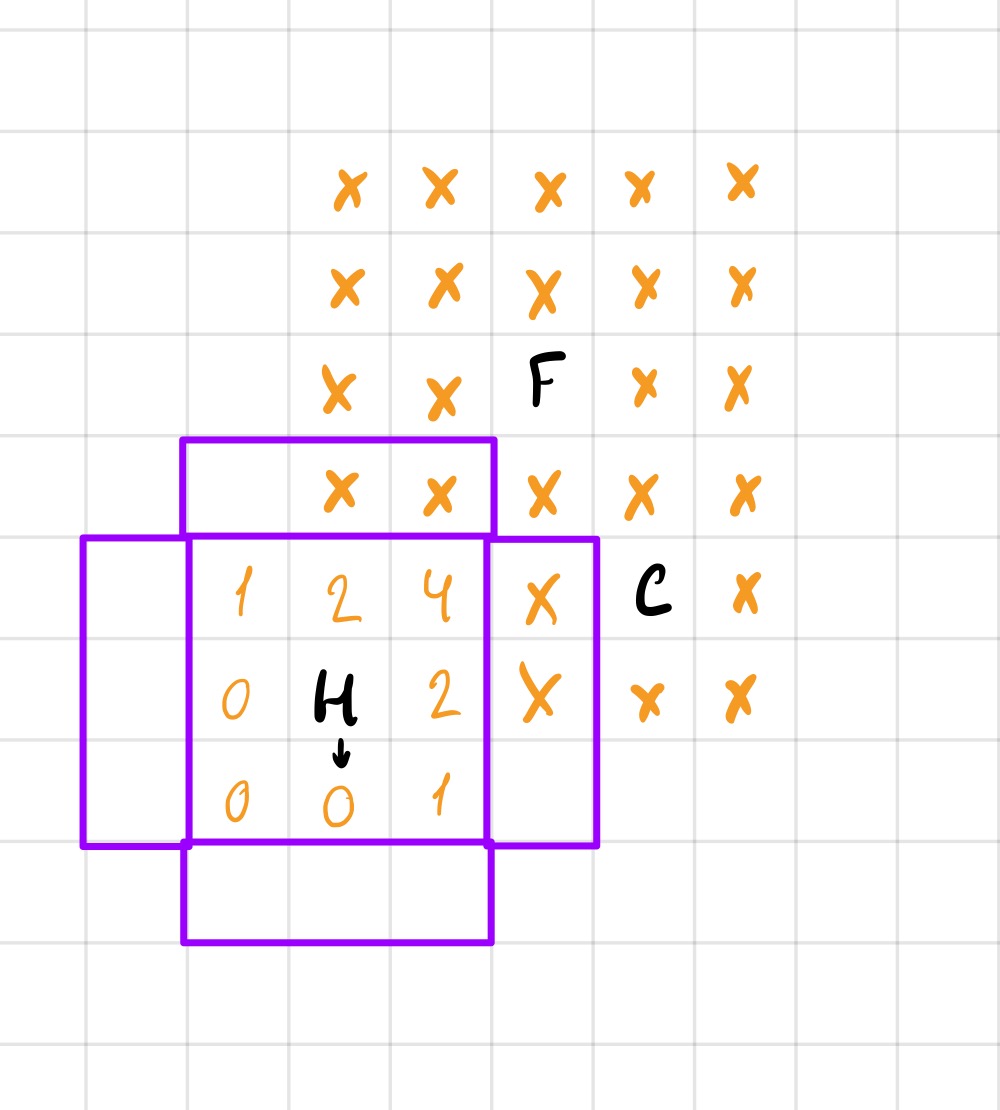 X X X X X
X X X X X
X X F X X
X X X X X
1 2 4 X C X
0 H 2 X X X
0 0 1